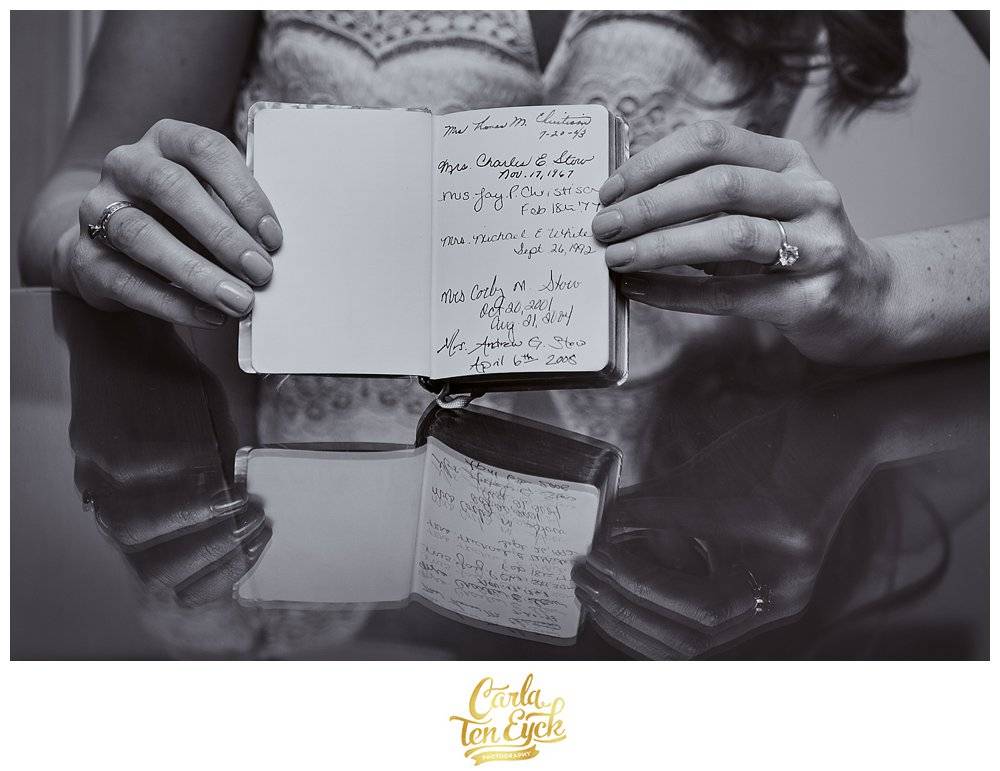 Mrs Thomas M. Christison
7-20-43
Mrs. Charles E Stow
Nov. 17, 1967
Mrs. Jay. P. Christison
Feb 18th '77
Mrs. Michael E White
Sept 26, 1992
Mrs Corby M. Stow
Oct 20, 2001
Aug. 21, 2004
Mrs. Andrew G. Stow
April 6th 2008
Carla
Ten Eyck
PHOTOGRAPHY